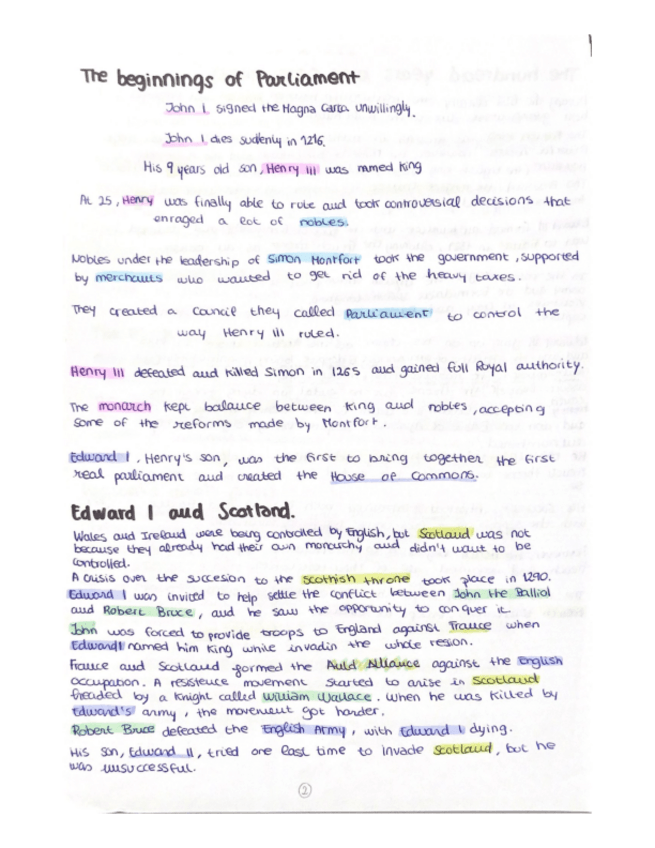 The beginnings of Parliament
John I signed the Magna Carta unwillingly.
John I dies sudenly in 1216.
His 9 years old son, Henry III was named King
At 25, Henry was finally able to rule and took controversial decisions that
enraged a lot of nobles.
Nobles under the leadership of Simon Montfort took the government, supported
by merchants who wanted to get rid of the heavy taxes.
They created a Council they called Parliament to control the
way Henry III ruled.
Henry III defeated and killed Simon in 1265 and gained full Royal authority.
The monarch kept balance between King and nobles, accepting
some of the reforms made by Montfort.
Edward I, Henry's son, was the first to bring together the first
real parliament and created the House of Commons.
Edward I and Scotland.
Wales and Ireland were being controlled by English, but Scotland was not
because they already had their own monarchy and didn't want to be
controlled.
A crisis over the succesion to the scottish throne took place in 1290.
Edward I was invited to help settle the conflict between John the Balliol
and Robert Bruce, and he saw the opportunity to conquer it.
John was forced to provide troops to England against France when
Edward I named him King while invadin the whole resion.
France and Scotland formed the Auld Alliance against the English
occupation. A resistence movement started to arise in Scotland
headed by a Knight called William Wallace. When he was killed by
Edward's army, the movement got harder.
Robert Bruce defeated the English Army, with Edward I dying.
His son, Edward II, tried one last time to invade Scotland, but he
was unsuccessful.
2